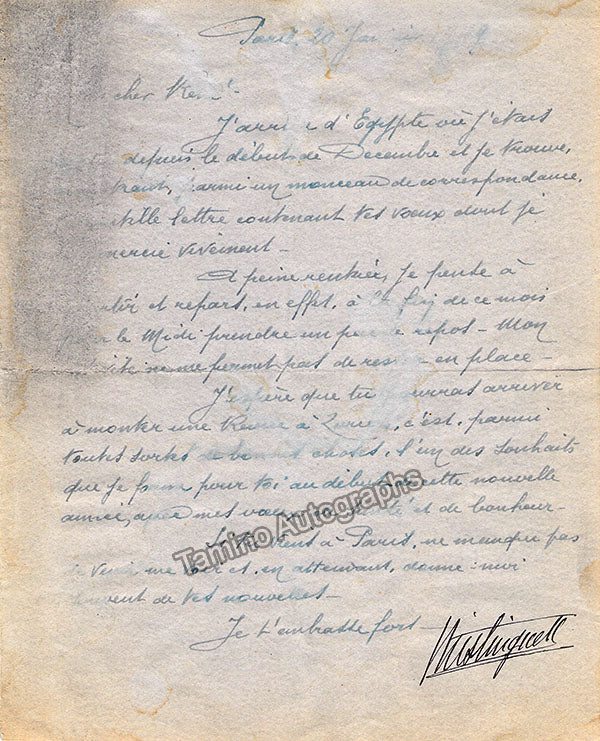 Paris, 20
cher René -
J'arrive d'Egypte où j'étais
depuis le début de Decembre et je trouve,
parmi un monceau de correspondance,
lettre contenant tes vœux dont je
vivement -
A peine rentrée, je pense à
et repars, en effet, à la fin de ce mois
le Midi prendre un peu de repos - Mon
ne me permet pas de rester en place -
J'espère que tu pourras arriver
à monter une Revue à Zurich, c'est, parmi
toutes sortes de bonnes choses, l'un des souhaits
que je forme pour toi au début de cette nouvelle
année, avec mes vœux de et de bonheur -
viens à Paris, ne manque pas
de venir me voir et, en attendant, donne-moi
souvent de tes nouvelles -
Je t'embrasse fort -
Mistinguett
Tamino Autographs